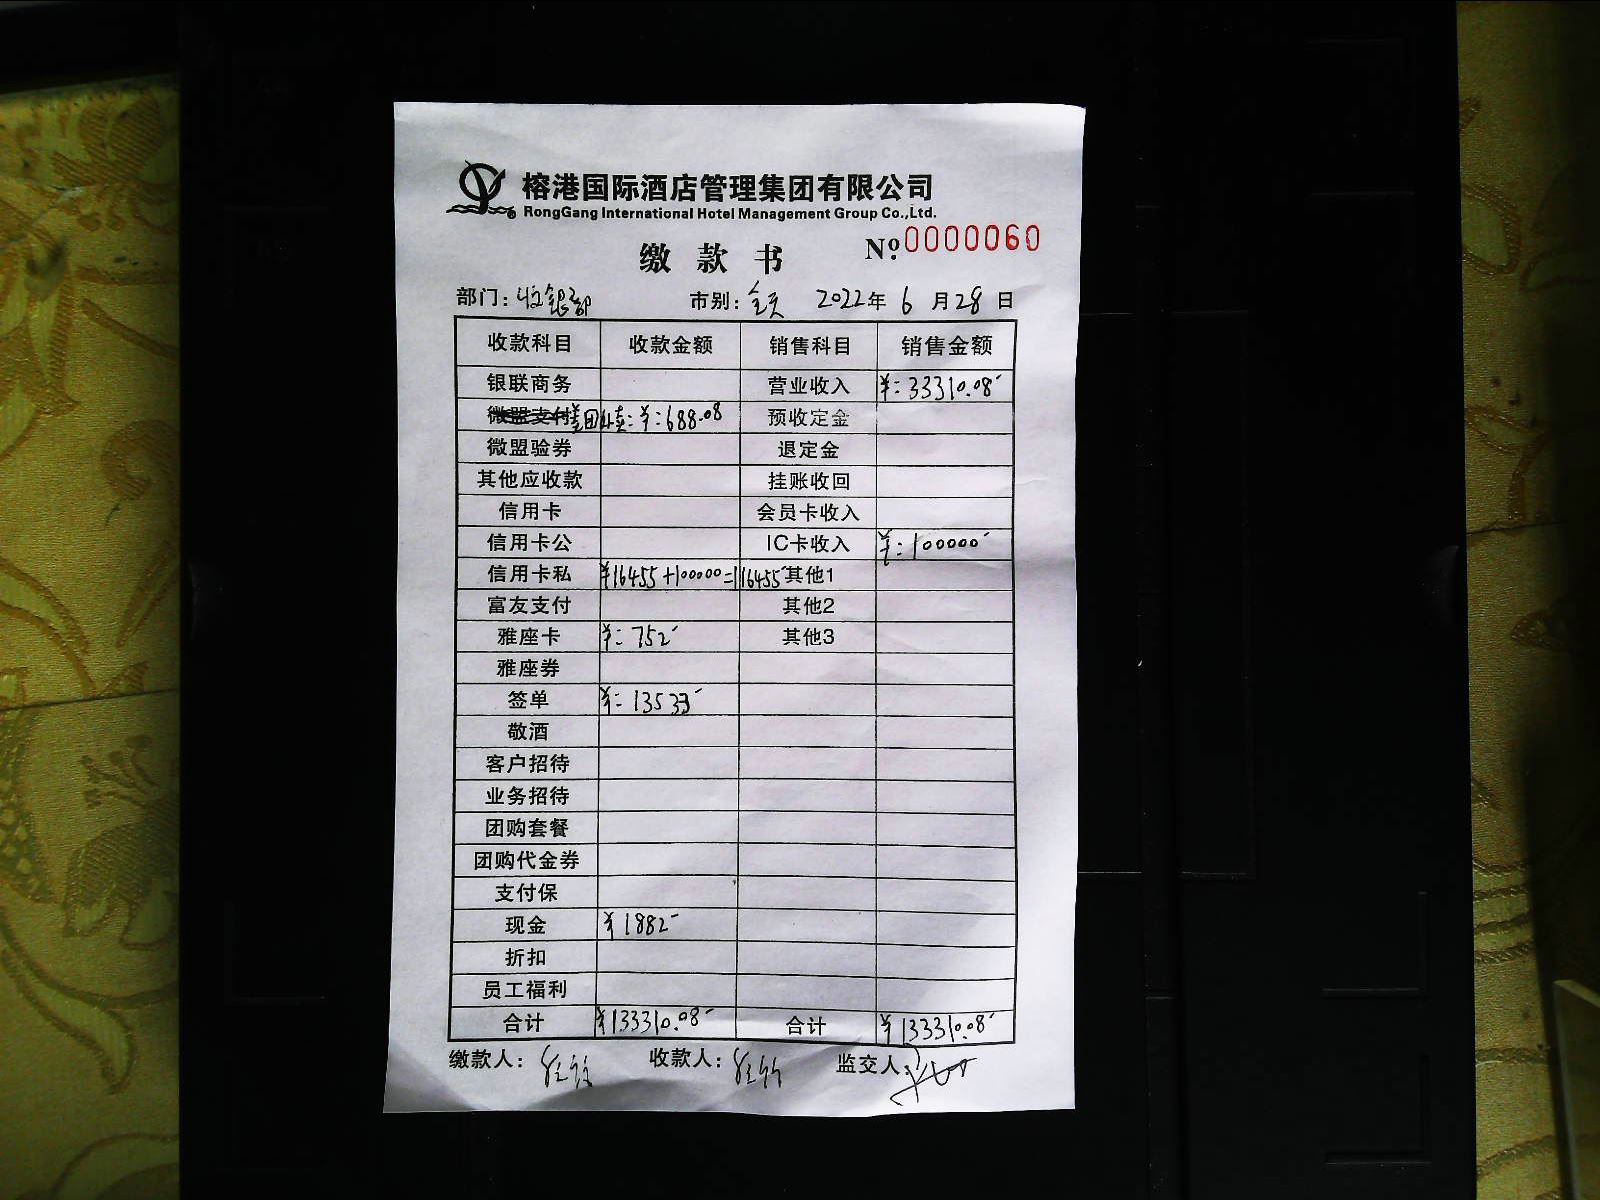 榕港国际酒店管理集团有限公司
RongGang International Hotel Management Group Co.,Ltd.
缴款书 Nº:0000060
部门：收银部 市别：全天 2022年6月28日
收款科目 收款金额 销售科目 销售金额
银联商务 营业收入 ¥：33310.08
微盟支付 美团外卖：¥：688.08 预收定金
微盟验券 退定金
其他应收款 挂账收回
信用卡 会员卡收入
信用卡公 IC卡收入 ¥：100000
信用卡私 ¥16455+100000=116455 其他1
富友支付 其他2
雅座卡 ¥：752 其他3
雅座券
签单 ¥：13533
敬酒
客户招待
业务招待
团购套餐
团购代金券
支付保
现金 ¥1882
折扣
员工福利
合计 ¥133310.08 合计 ¥133310.08
缴款人： 收款人： 监交人：